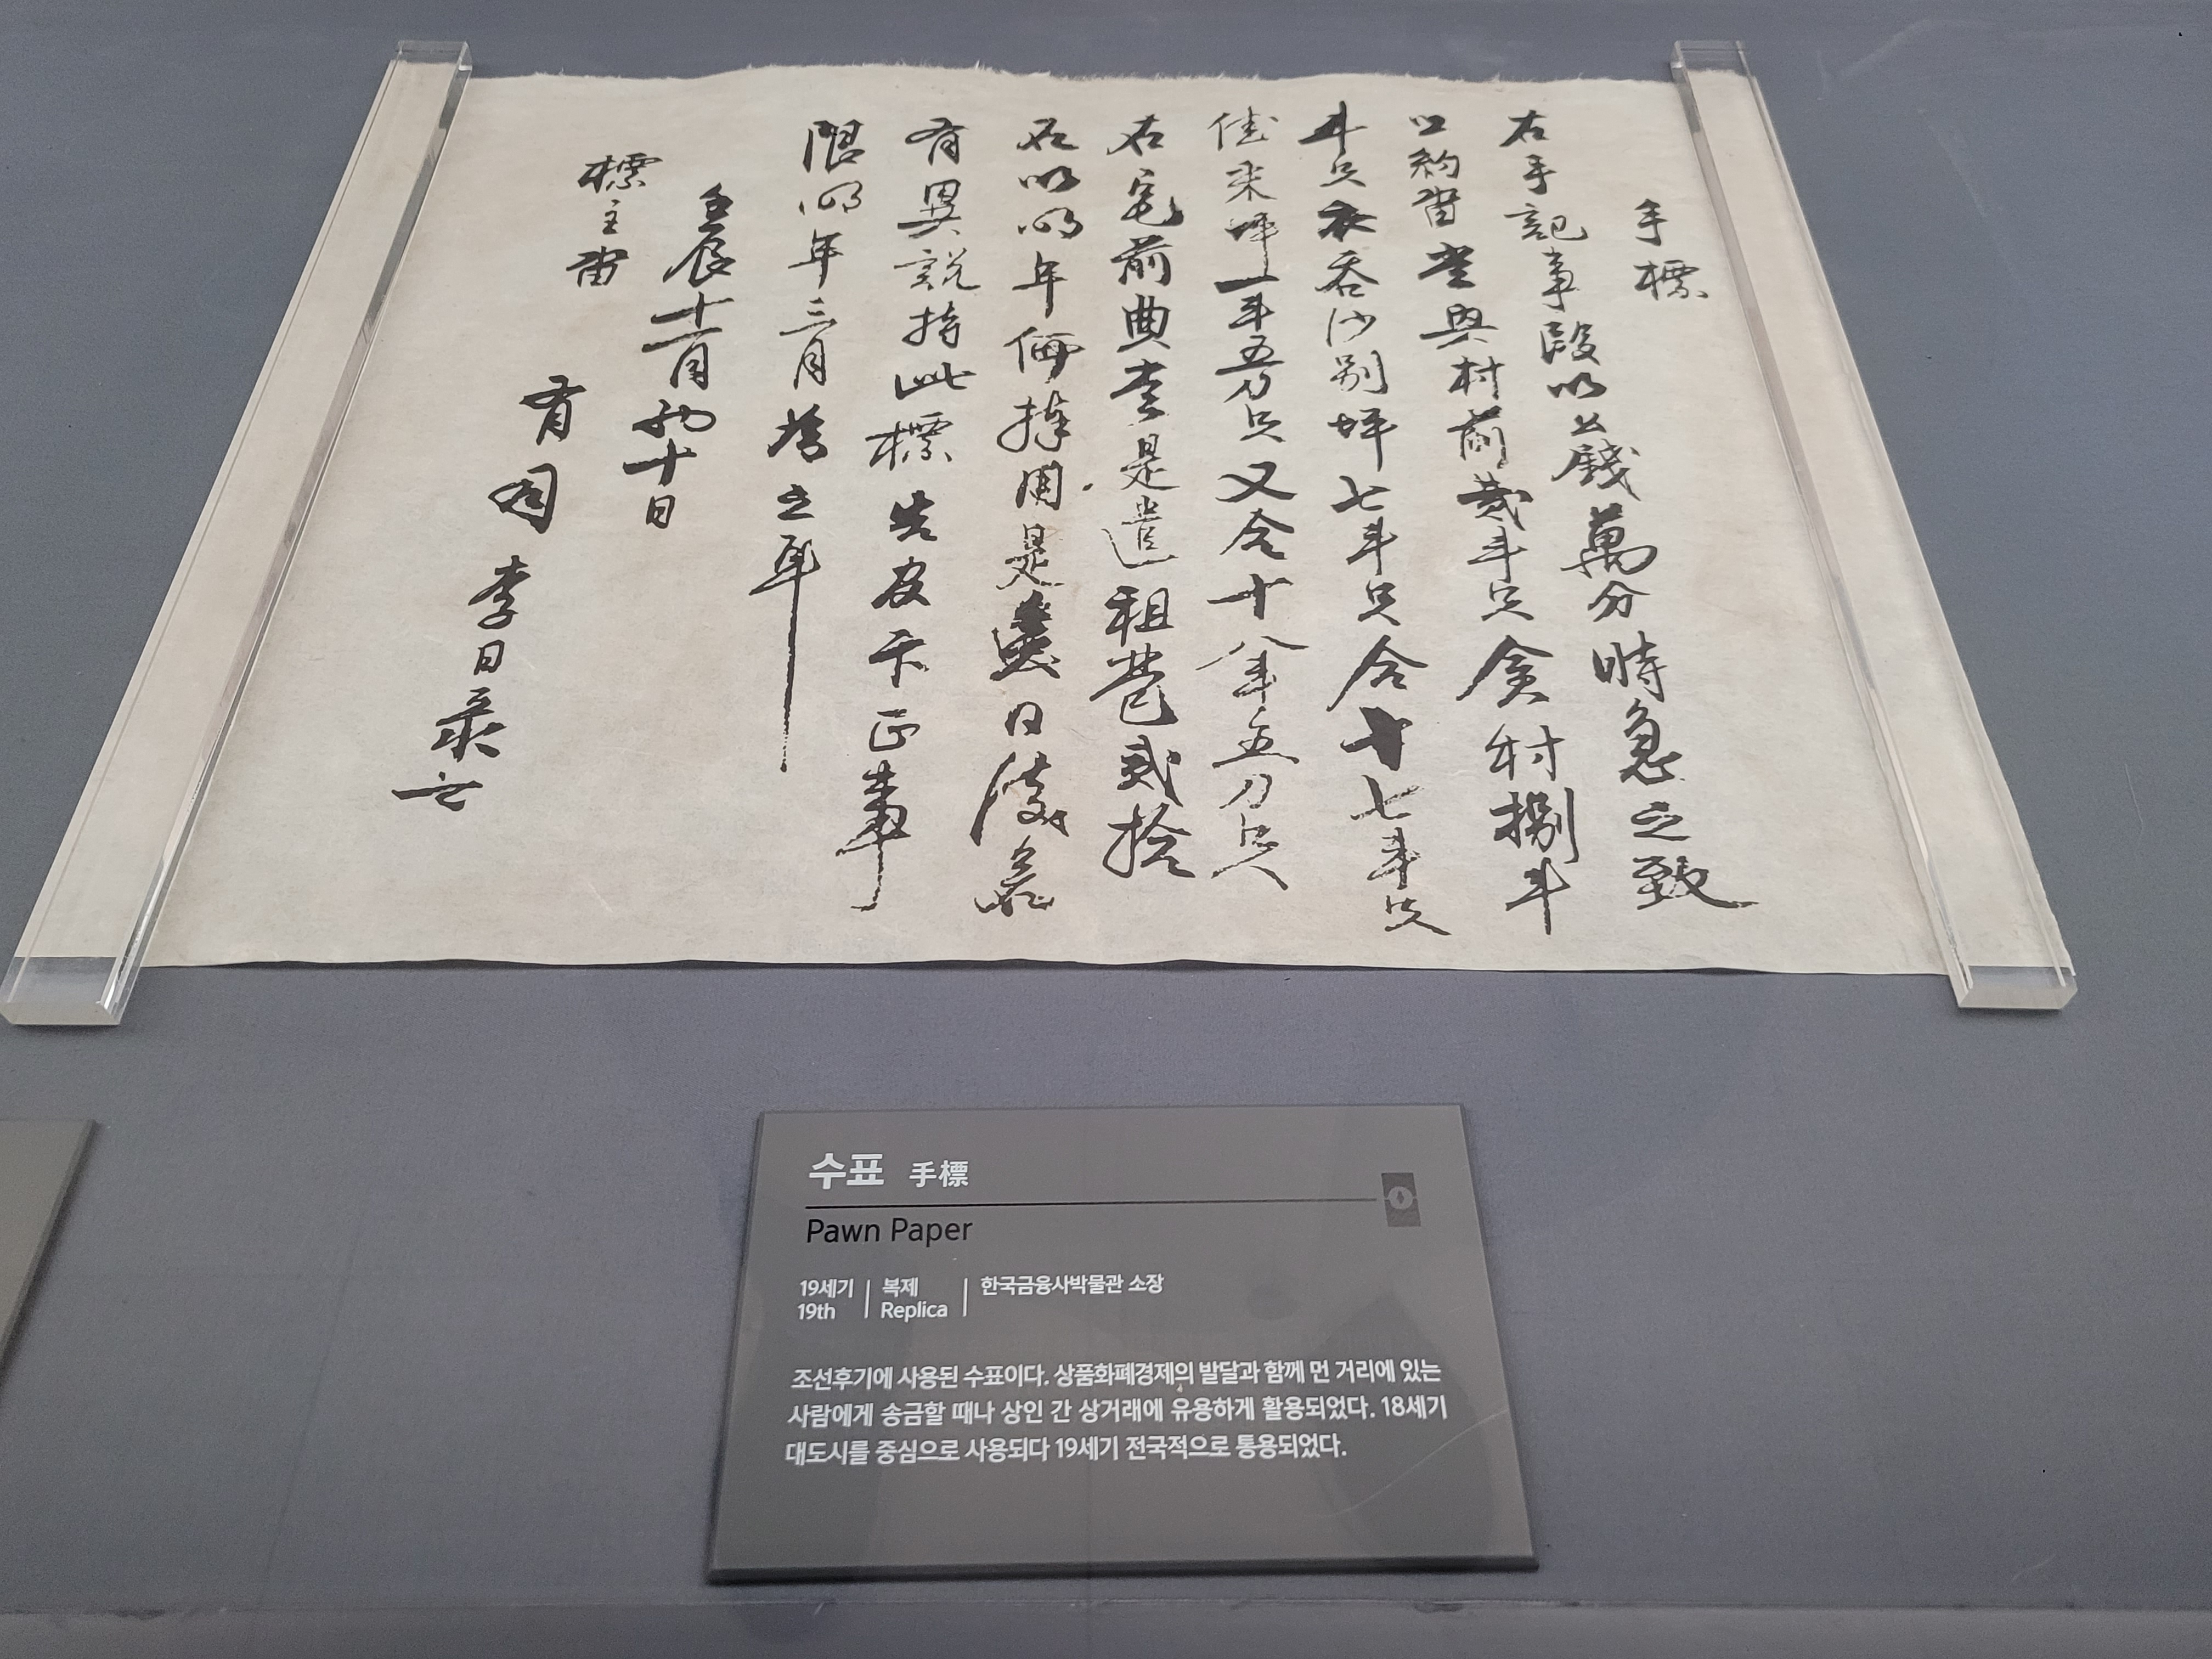 手標
右手記事段以公錢萬分時急之致
以約畓堂與村前貳斗只 村捌斗
斗只 吞沙別坪七斗只合十七斗只
佳來坪一斗五刀只又合十八斗五刀只
右宅前典 是遣租 貳拾
石以明年 捧用是 日後
有異說持此標告 卞正事
限明年三月
壬辰十二月初十日
標主畓
有司 李日
수표 手標
Pawn Paper
19세기 복제 한국금융사박물관 소장
19th Replica
조선후기에 사용된 수표이다. 상품화폐경제의 발달과 함께 먼 거리에 있는
사람에게 송금할 때나 상인 간 상거래에 유용하게 활용되었다. 18세기
대도시를 중심으로 사용되다 19세기 전국적으로 통용되었다.